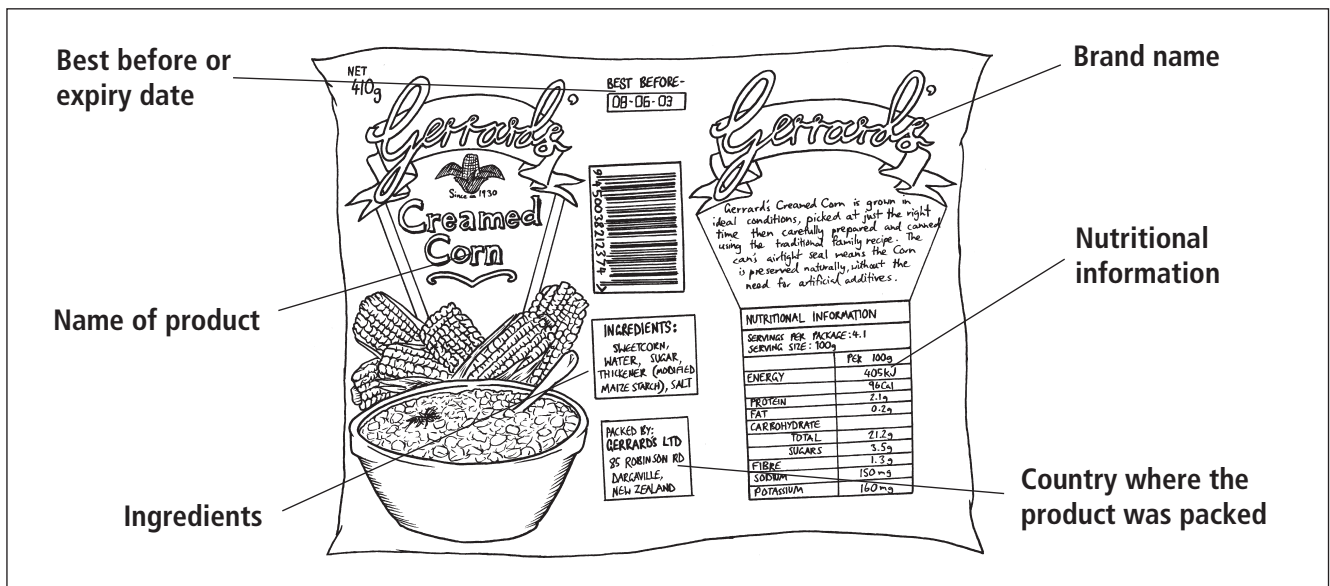 Best before or
expiry date
Name of product
Ingredients
NET
410g
Gerrard's
Since 1930
Creamed
Corn
BEST BEFORE-
08-06-03
9 415003 821237 4 >
INGREDIENTS:
SWEETCORN,
WATER, SUGAR,
THICKENER (MODIFIED
MAIZE STARCH), SALT
PACKED BY:
GERRARD'S LTD
85 ROBINSON RD
DARGAVILLE,
NEW ZEALAND
Gerrard's
Gerrard's Creamed Corn is grown in
ideal conditions, picked at just the right
time then carefully prepared and canned
using the traditional family recipe. The
can's airtight seal means the Corn
is preserved naturally, without the
need for artificial additives.
NUTRITIONAL INFORMATION
SERVINGS PER PACKAGE: 4.1
SERVING SIZE: 100g
PER 100g
ENERGY 405kJ
96Cal
PROTEIN 2.1g
FAT 0.2g
CARBOHYDRATE
TOTAL 21.2g
SUGARS 3.5g
FIBRE 1.3g
SODIUM 150mg
POTASSIUM 160mg
Brand name
Nutritional
information
Country where the
product was packed